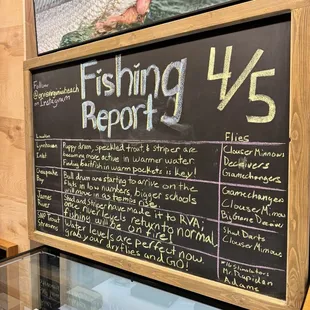 Follow
on Instagram
Fishing
Report
4/5
Location
Flies
Lynnhaven
Inlet
Puppy drum, speckled trout, & striper are
becoming more active in warmer water.
Finding baitfish in warm pockets is key!
Clouser Minnows
Deceivers
Gamechangers
Chesapeake
Bay
Bull drum are starting to arrive on the
flats in low numbers, bigger schools
will move in as temps rise.
Gamechangers
Clouser Minnow
James
River
Shad and Striper have made it to RVA,
once river levels return to normal
fishing will be on fire!
Shad Darts
Clouser Minnows
SNP Trout
Streams
Water levels are perfect now.
grab your dry flies and GO!
Mr. Rapidan
Adams